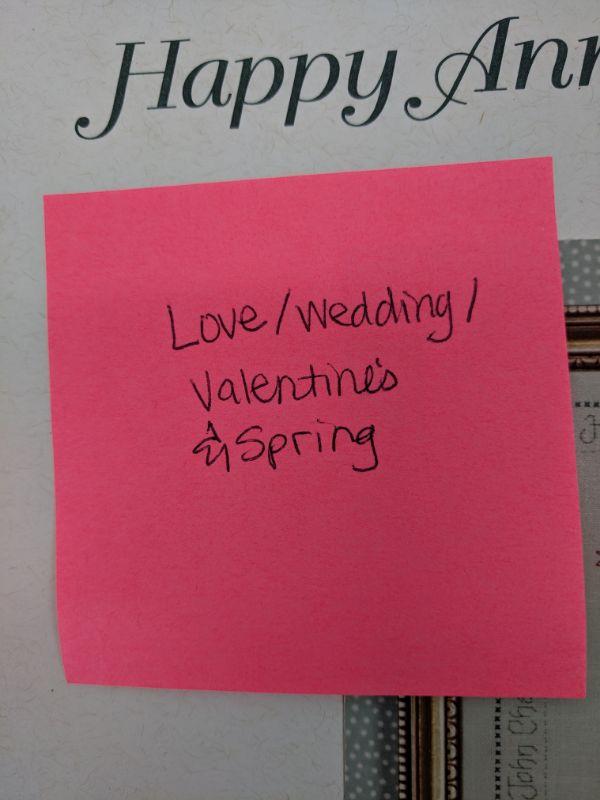 Happy Ann
Love/Wedding/
Valentine's
& Spring
John Cha